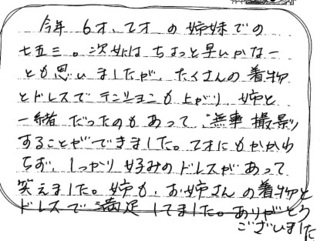 今年 6才、2才 の 姉妹での
七五三。次女は ちょっと早いかなー
とも思いましたが、たくさんの着物
とドレスでテンションも上がり 姉と
一緒 だったのもあって、無事 撮影
することができました。2才にもかかわ
らず、しっかり好みのドレスがあって
笑えました。姉も、お姉さんの着物と
ドレスで 満足 してました。ありがとう
ございました